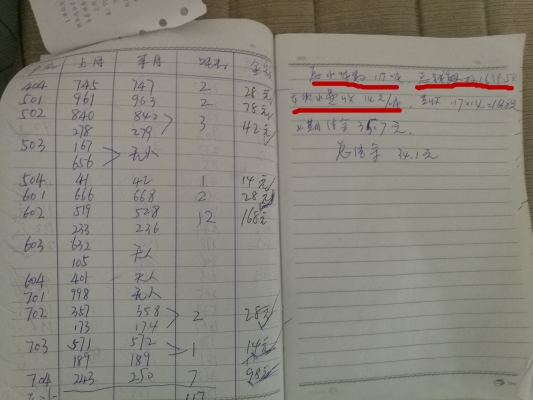 上月 本月 吨数 金额
404 745 747 2 28元
501 961 963 2 28元
502 840 842 3 42元
278 279
503 167 无人
656
504 41 42 1 14元
601 666 668 2 28元
602 519 528 12 168元
233 236
603 632 无人
105
604 401 无人
701 998 无人
702 357 358 2 28元
173 174
703 571 572 1 14元
189 189
704 243 250 7 98元
117
总水吨数117吨,
水费 14元/吨,
上期结余 35.7元,
总结余 34.1元